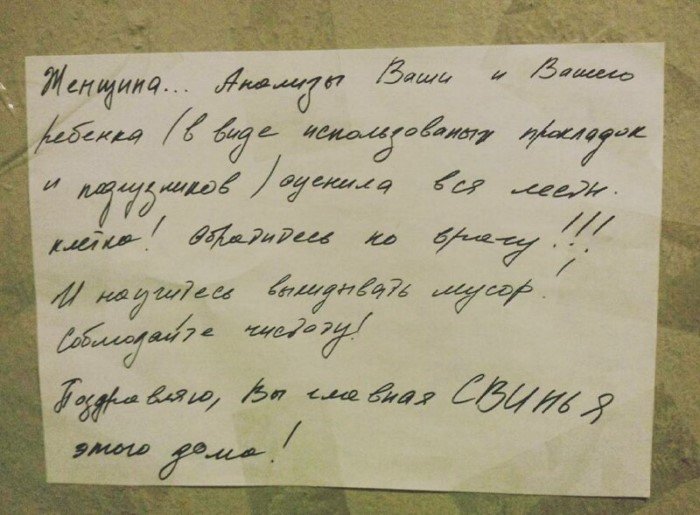 Женщина... Анализы Ваши и Вашего
ребенка (в виде использованых прокладок
и подгузников) оценила вся лестн.
клетка! Обратитесь ко врачу!!!
И научитесь выкидывать мусор!
Соблюдайте чистоту!
Поздравляю, Вы главная СВИНЬЯ
этого дома!